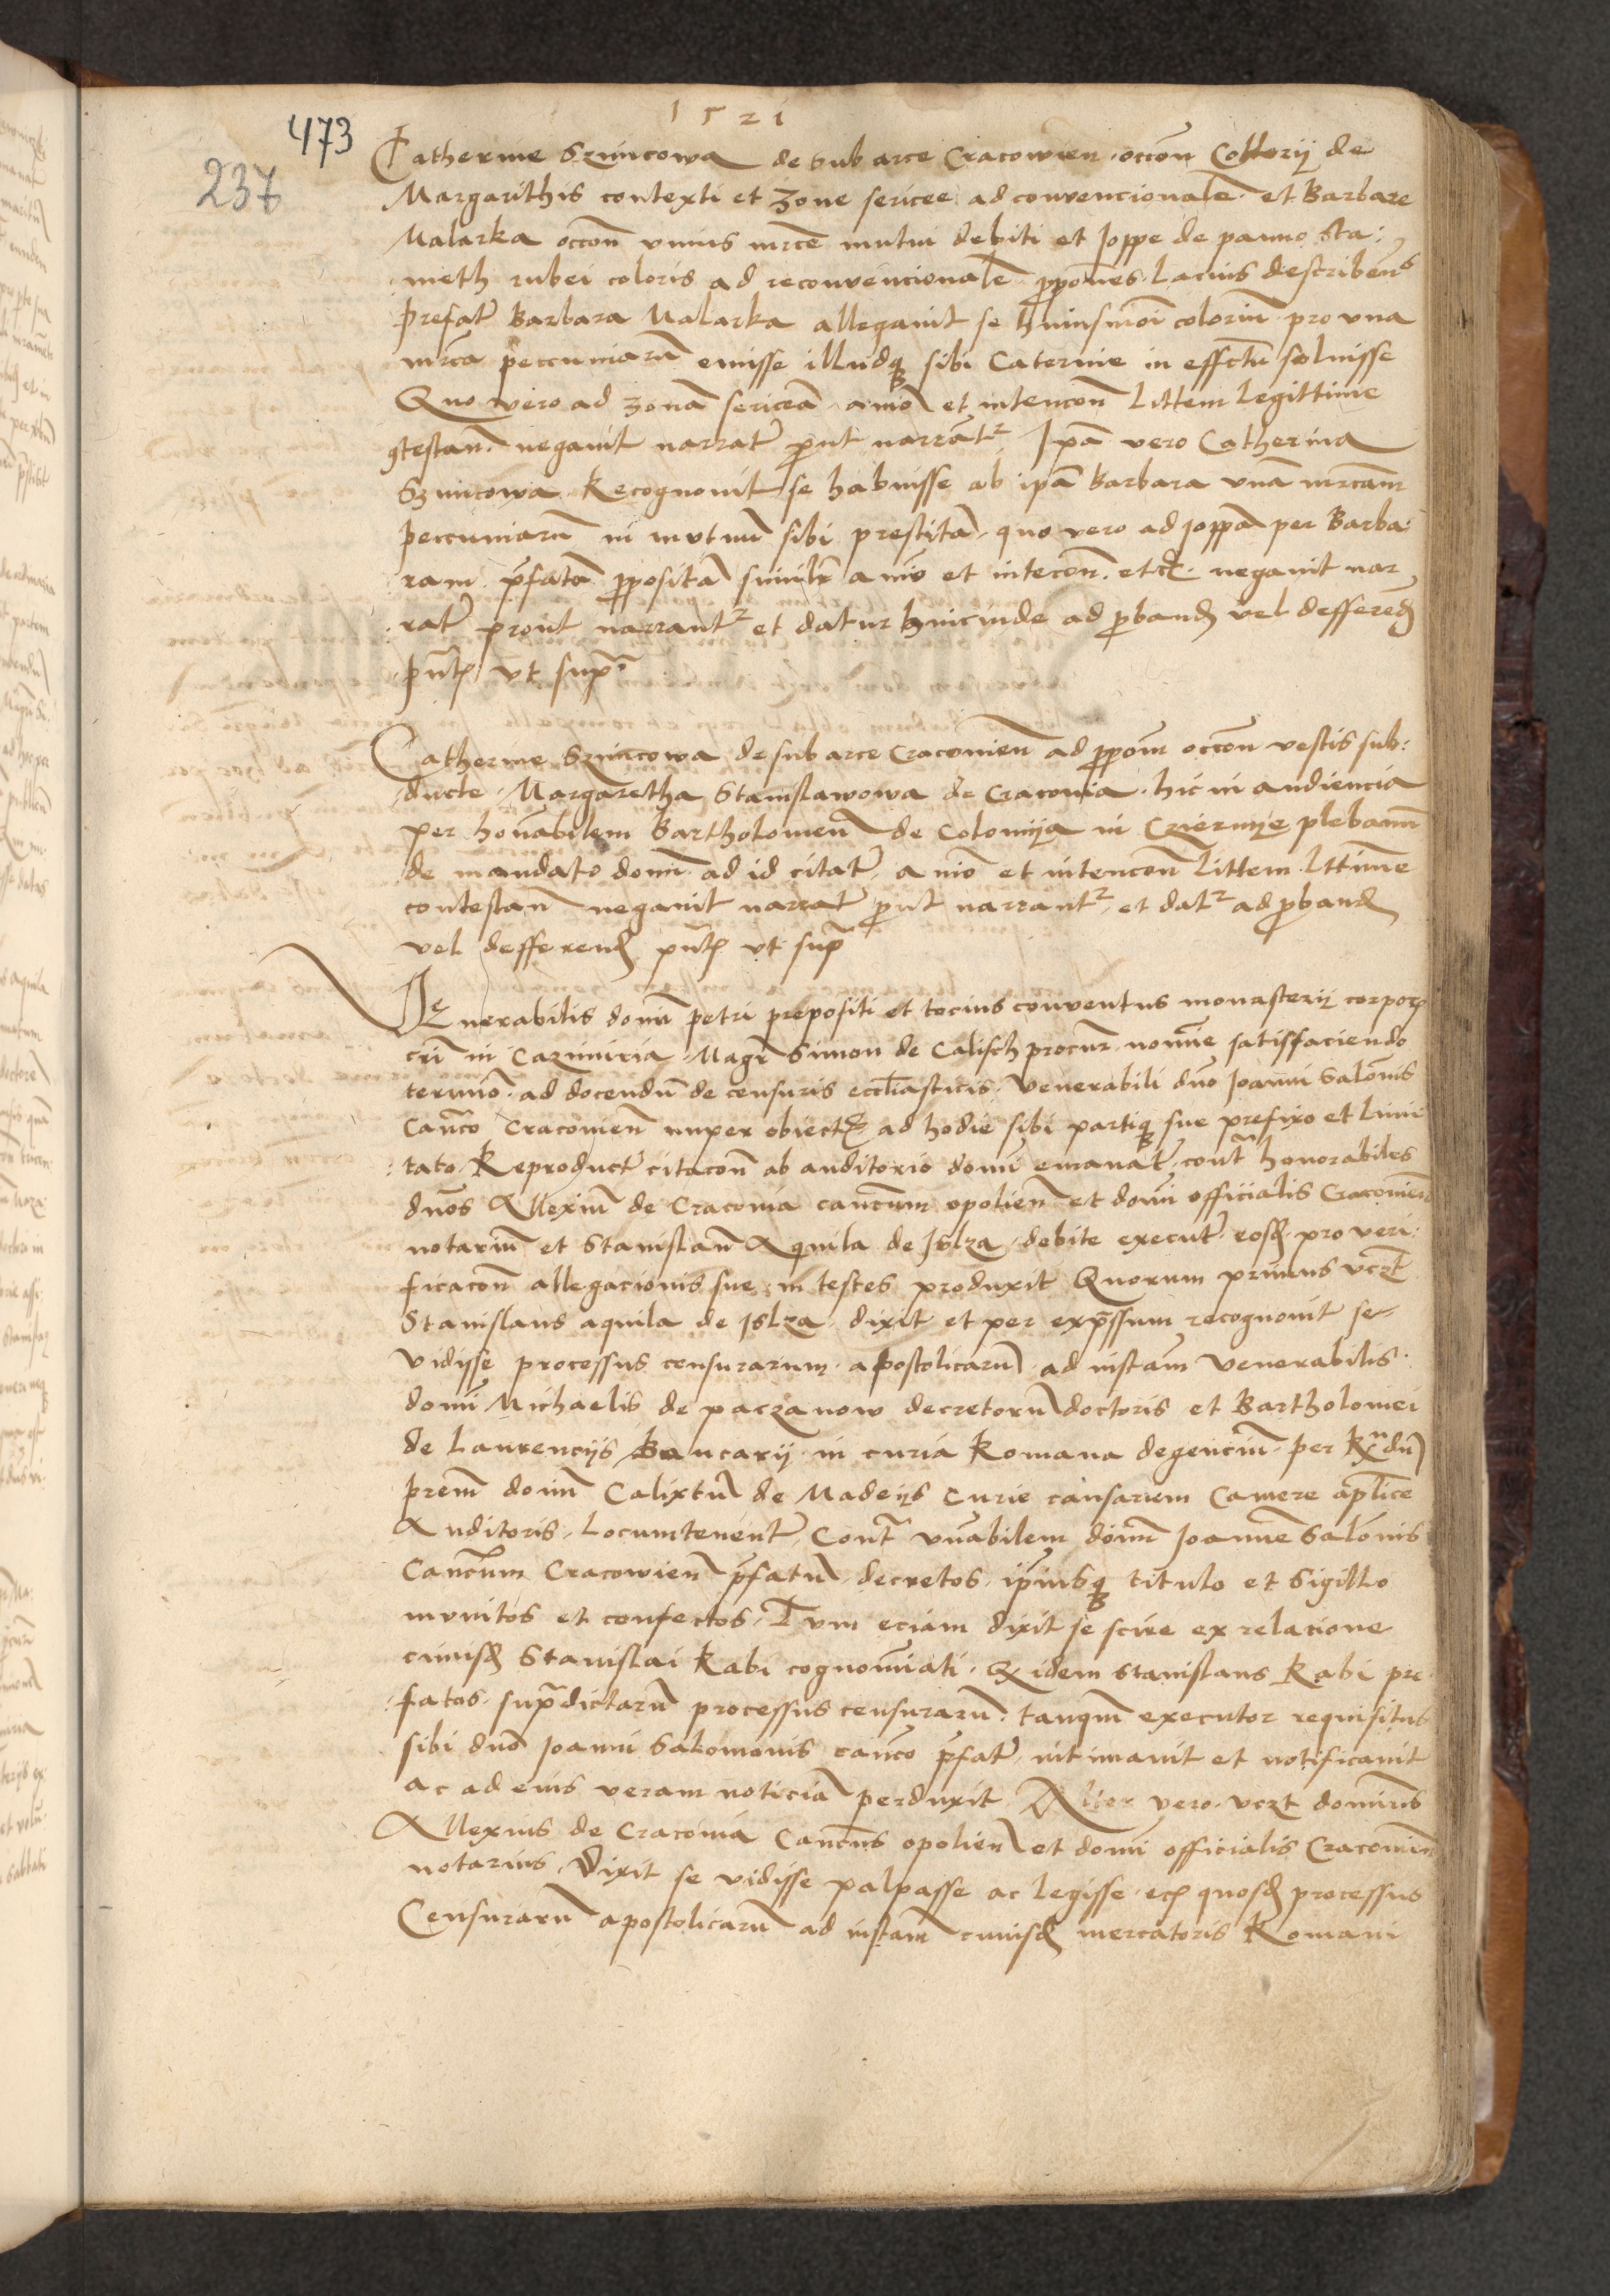 1521
473
237
Catherine Szimcowa de sub arce Cracowien. occon̄ Collerij de
Margarithis contexti et zone sericee ad convencionalē et Barbare
Malarka occon̄ vnius mrce mutui debiti et Joppe de panno sta:
meth rubei coloris ad reconvencionalē ꝓpones. Lacius describēn
Prefata Barbara Malarka allegavit se huiusmōi colerium pro vna
mrca peccuniarū emisse illudq̄ sibi Caterine in effectu soluisse
Quo vero ad zonā sericeā aīo et intencōn Littem Legittime
ꝯtestan. negavit narrata prout narrantr Ipā vero Catherina
Szimcowa Recognovit se habuisse ab ipā Barbara vnā mrcam
peccuniarū in mutuū sibi prestitā, quo vero ad joppā per Barba:
ram prefatā ꝓpositā similr aīo et intecōn. etc. negavit nar
rata prout narrantr et datur hincinde ad ꝓband vel defferend
pntes vt supra
Catherine Szimcowa de sub arce Cracovien̄ ad ꝓpom occon̄ vestis sub:
ducte. Margaretha Stanislawowa de Cracovia. hic in audiencia
per honorabilem Bartholomeū de Colomija in Cziernije plebanū
de mandato domi ad id citata, aīo et intencōn Littem Lttime
contestan̄ negavit narrata prout narrantr, et datr ad ꝓband
vel defferend pntes vt supra
Venerabilis domi petri prepositi et tocius conventus monasterij corporis
cri in Cazimiria Magr Simon de Calisch procur. nomine satisfaciendo
termīo. ad docendū de censuris eccliasticis. Venerabili dno Joanni Salomis
Canco Cracovien̄ nuper obiectis ad hodie sibi partiq̄ sue prefixo et Limi
tato. Reproducta citacōn ab auditorio domi emanata. contra honorabiles
dnos Allexium de Cracovia cancum opolien̄ et domi officialis Cracovien̄
notarium et Stanislaū Aquila de Jslza debite executa. eosd pro veri:
ficacōn allegacionis sue in testes produxit Quorum primus vczt
Stanislaus aquila de Jslza. dixit et per expressum recognovit se
vidisse processus censurarum. apostolicarū ad instam Venerabilis.
domi Michaelis de paczanow decretorū doctoris et Bartholomei
de Laurencijs Bancarij in curia Romana degencium per Rndū
prem dom Calixtū de Madeijs Curie causarum Camere aplice
Auditoris. Locumtenentē, Contra vnabilem dom Joannē Salomis
Cancum Cracowien̄ prefatū. decretos. ipiusq̄ titulo et sigillo
munitos et confectos. Tum eciam dixit se scire ex relacione
cuiusd Stanislai Rabi cognominati. Q idem Stanislaus Rabi pre
fatos. supradictarū processus censurarū. tanqm executor requisitus
sibi dno Joanni Salomonis canco prefato intimavit et notificavit
ac ad eius veram noticiā perduxit. Alter vero. vczt dominus
Allexius de Cracovia Cancus opolien̄ et domi officialis Cracovien̄
notarius. Dixit se vidisse palpasse ac Legisse. quosd processus
Censurarū apostolicarū ad instam cuiusd mercatoris Romani